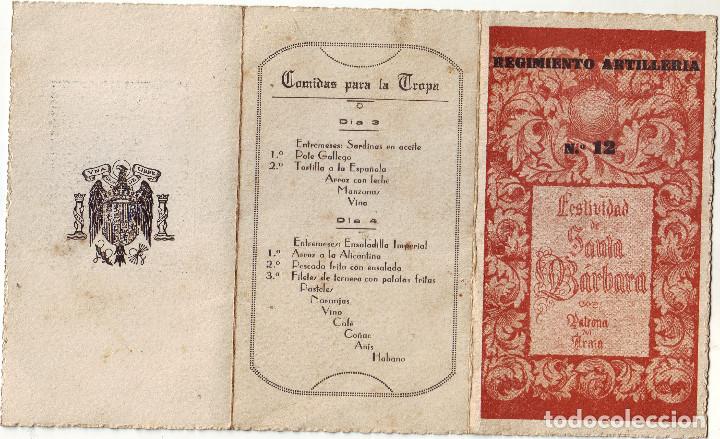 UNA
LIBRE
Comidas para la Tropa
Dia 3
Entremeses: Sardinas en aceite
1.º Pote Gallego
2.º Tortilla a la Española
Arroz con leche
Manzanas
Vino
Dia 4
Entremeses: Ensaladilla Imperial
1.º Arroz a la Alicantina
2.º Pescado frito con ensalada
3.º Filetes de ternera con patatas fritas
Pasteles
Naranjas
Vino
Café
Coñac
Anis
Habano
REGIMIENTO ARTILLERIA
N.º 12
Festividad
de
Santa
Bárbara
Patrona
del
Arma
todocoleccion.net